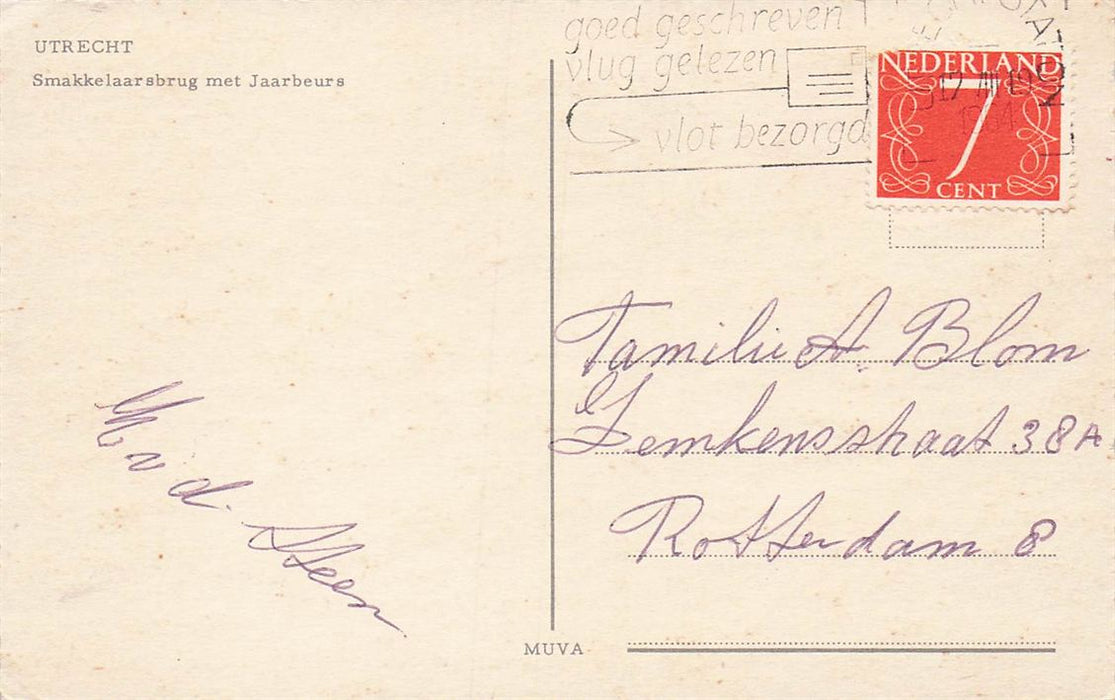 UTRECHT
Smakkelaarsbrug met Jaarbeurs
goed geschreven
vlug gelezen
vlot bezorgd
NEDERLAND
7
CENT
v d. Steen
Familie A Blom
38A
Rotterdam 8
MUVA